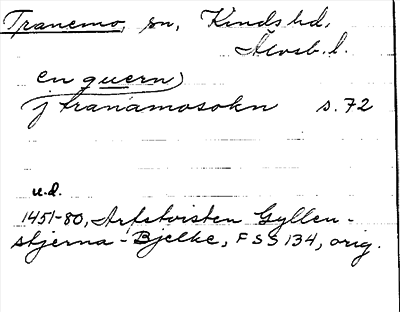 Tranemo, sn, Kinds hd,
Älvsb. l.
en quern
j tranamosokn s. 72
u.d.
1451-80, Arfstvisten Gyllen-
stjerna-Bjelke, FSS 134, orig.